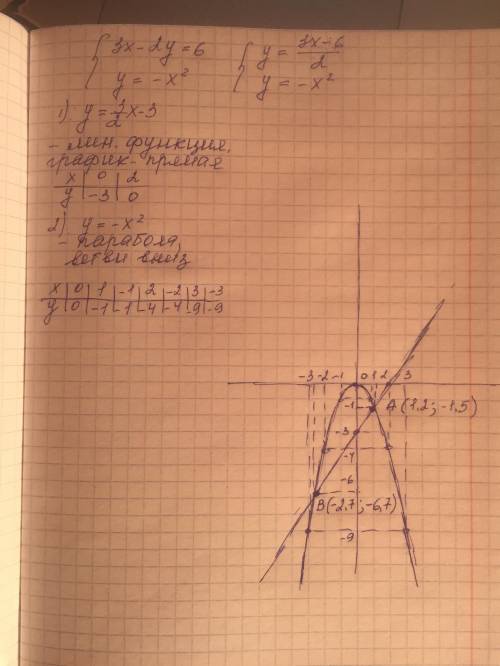 {3x-2y=6 {y=3x-6/2
{y=-x² {y=-x²
1) y=3/2x-3
- лин. функция,
график-прямая
x | 0 | 2
y | -3 | 0
2) y=-x²
- парабола,
ветви вниз
x | 0 | 1 | -1 | 2 | -2 | 3 | -3
y | 0 | -1 | -1 | -4 | -4 | -9 | -9
-3 -2 -1 0 1 2 3
-1 A(1,2;-1,5)
-3
-4
-6
B(-2,7;-6,7)
-9